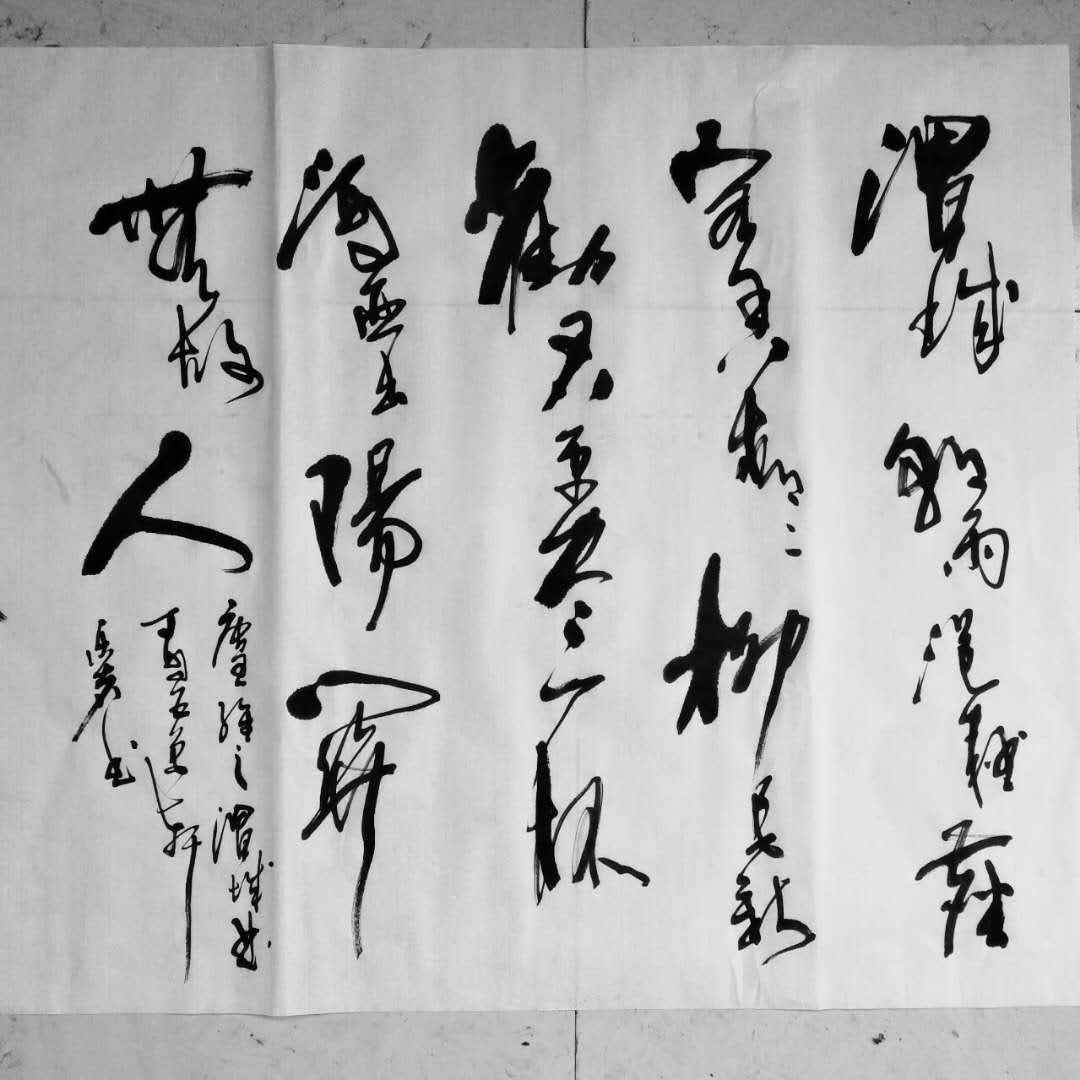 渭城朝雨浥輕塵
客舍青青柳色新
勸君更盡一杯
酒西出陽關
無故人
唐王維之渭城曲
軒
書